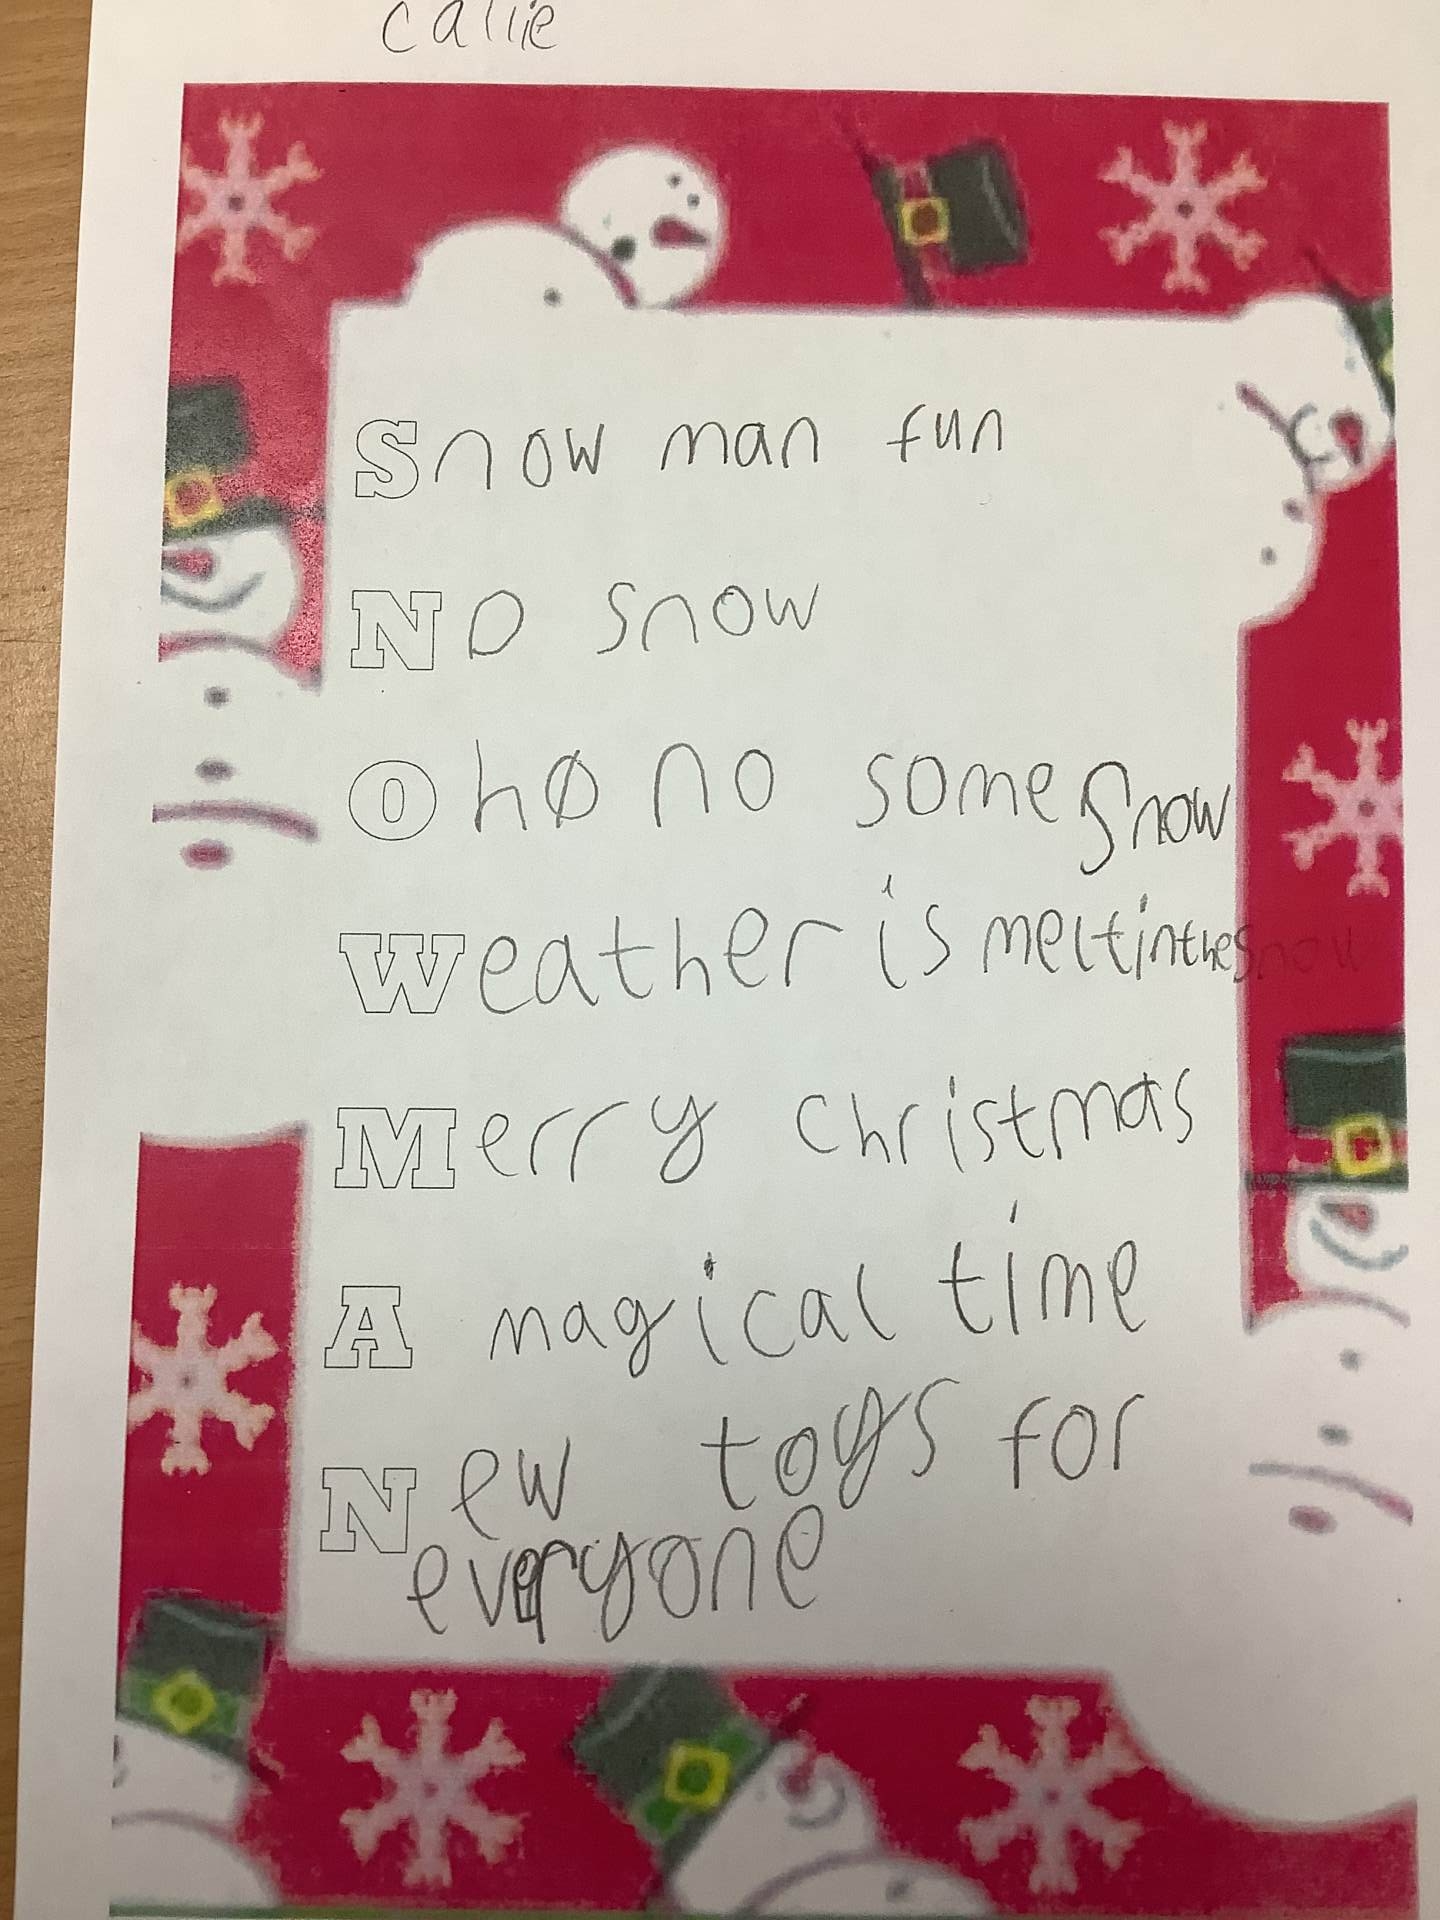 callie
Snow man fun
No snow
Oho no some snow
Weather is meltinthesnow
Merry christmas
A magical time
New toys for
everyone